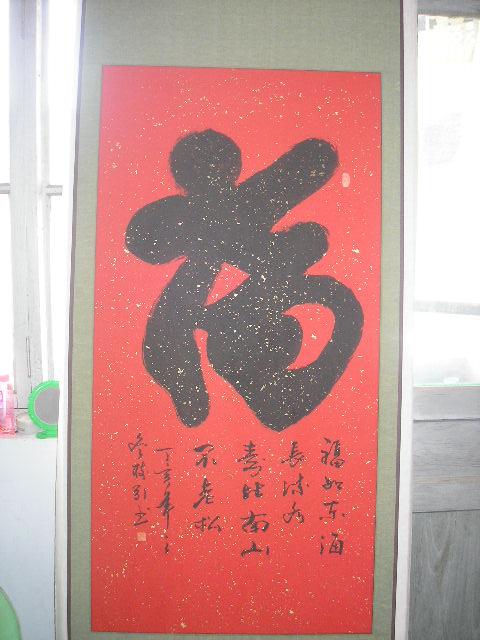 福
福如东海
長流水
寿比南山
不老松
丁亥年之
冬 书